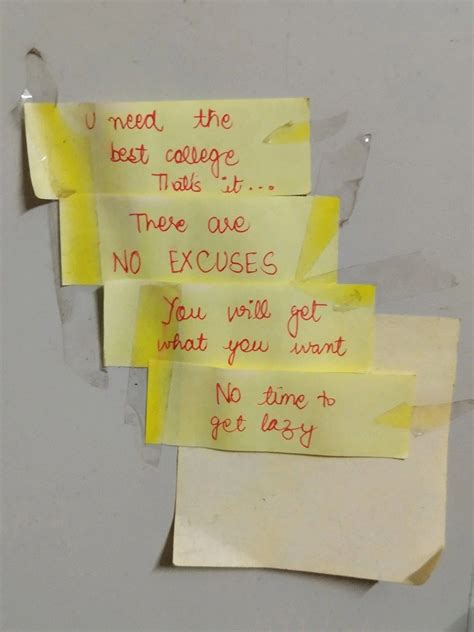 U need the
best college
That's it...
There are
NO EXCUSES
You will get
what you want
No time to
get lazy